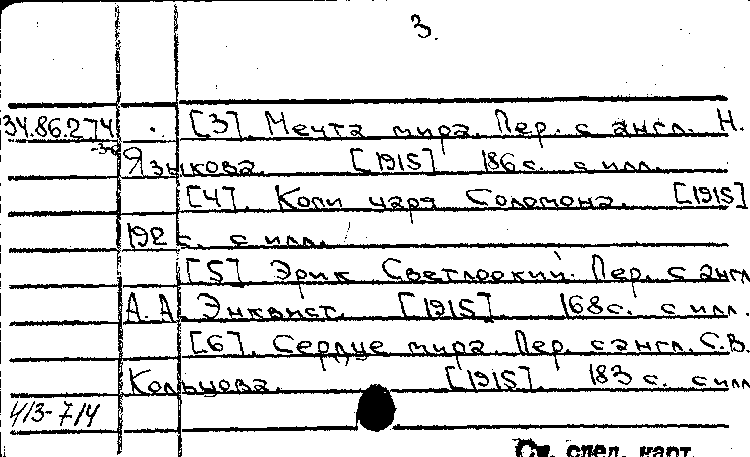 3.
34.86.274 . [3]. Мечта мира. Пер. с англ. Н.
-3-е Языкова. [1915] 186 с. с илл.
[4]. Копи царя Соломона. [1915]
192 с. с илл.
[5] Эрик Светлоокий. Пер. с англ
А. А. Энквист. [1915] 168 с. с илл.
[6]. Сердце мира. Пер. с англ. С.В.
Кольцова. [1915]. 183 с. с илл
413-714
См. след. карт.